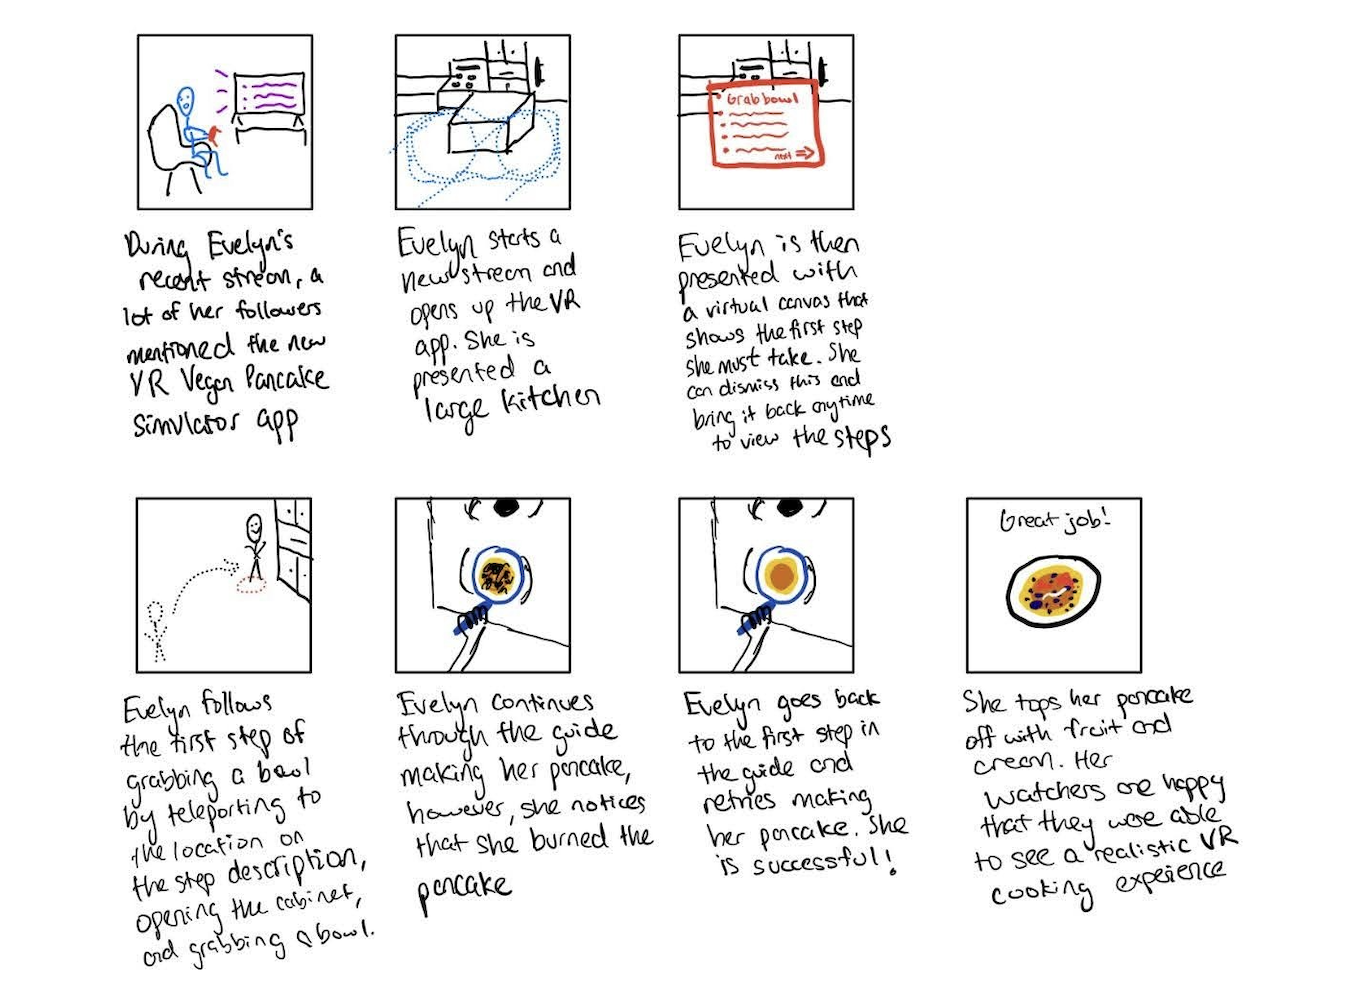 Grab bowl
next
During Evelyn's
recent stream, a
lot of her followers
mentioned the new
VR Vegan Pancake
Simulator app
Evelyn starts a
new stream and
opens up the VR
app. She is
presented a
large kitchen
Evelyn is then
presented with
a virtual canvas that
shows the first step
she must take. She
can dismiss this and
bring it back anytime
to view the steps
Great job!
Evelyn follows
the first step of
grabbing a bowl
by teleporting to
the location on
the step description,
opening the cabinet,
and grabbing a bowl.
Evelyn continues
through the guide
making her pancake,
however, she notices
that she burned the
pancake
Evelyn goes back
to the first step in
the guide and
retries making
her pancake. She
is successful!
She tops her pancake
off with fruit and
cream. Her
watchers are happy
that they were able
to see a realistic VR
cooking experience